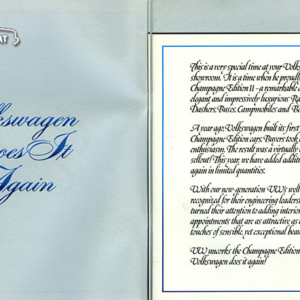 AT
kswagen
oes It
Again
This is a very special time at your Volks
showroom. It is a time when he proudl
Champagne Edition II - a remarkable
elegant and impressively luxurious Ra
Dashers, Buses, Campmobiles and B
A year ago Volkswagen built its first
Champagne Edition cars. Buyers took
enthusiasm. The result was a virtually
sellout! This year, we have added addit
again in limited quantities.
With our new-generation VW's, well
recognized for their engineering leaders
turned their attention to adding interior
appointments that are as attractive as
touches of sensible, yet exceptional beau
VW uncorks the Champagne Edition
Volkswagen does it again!